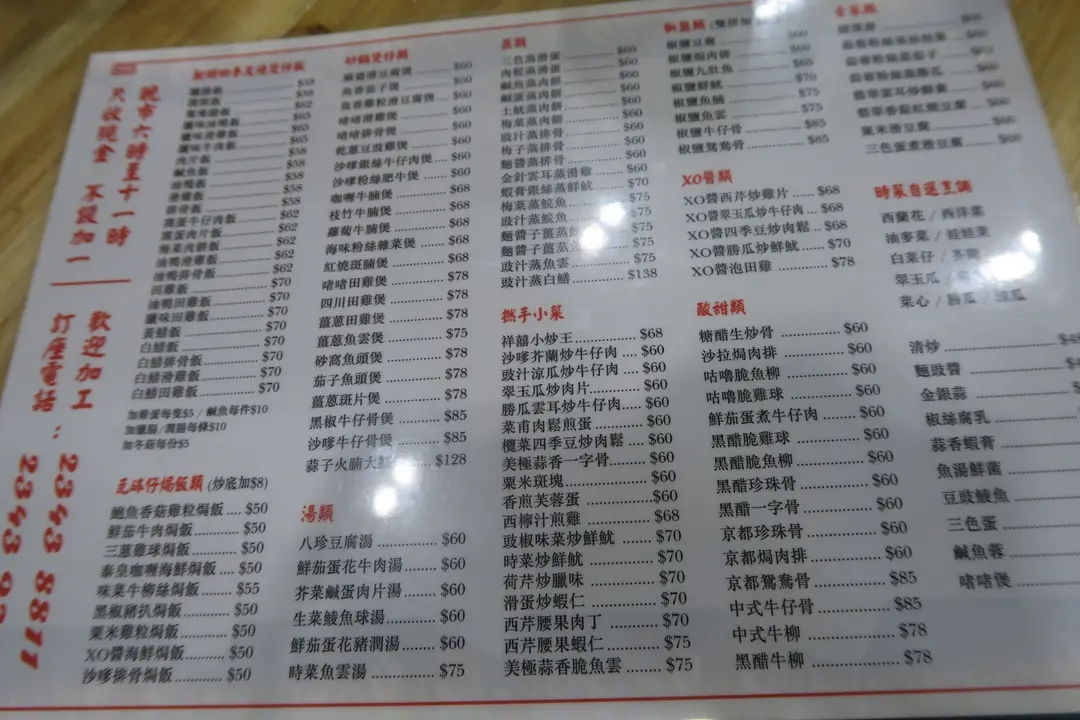 晚市六時至十一時
只收現金 不設加一
歡迎加工
訂座電話：2343 8877
臘腸飯 $58
潤腸飯 $58
臘味滑雞飯 $65
臘味牛肉飯 $65
肉片飯 $58
鹹魚飯 $58
油鴨飯 $58
滑雞飯 $58
排骨飯 $58
窩蛋牛仔肉飯 $62
窩蛋肉片飯 $62
梅菜肉餅飯 $62
油鴨滑雞飯 $62
油鴨排骨飯 $62
田雞飯 $70
油鴨田雞飯 $70
臘味田雞飯 $70
黃鱔飯 $70
白鱔飯 $70
白鱔排骨飯 $70
白鱔滑雞飯 $70
白鱔田雞飯 $70
加雞蛋每隻$5 / 鹹魚每件$10
加臘腸/潤腸每條$10
加冬菇每份$5
瓦砵仔焗飯類 (炒底加$8)
鮑魚香菇雞粒焗飯 $50
鮮茄牛肉焗飯 $50
三蔥雞球焗飯 $50
秦皇咖喱海鮮焗飯 $50
味菜牛柳絲焗飯 $55
黑椒豬扒焗飯 $50
粟米雞粒焗飯 $50
XO醬海鮮焗飯 $50
沙嗲排骨焗飯 $50
砂鍋煲仔類
麻婆滑豆腐煲 $60
魚香茄子煲 $60
魚香雞粒滑豆腐煲 $60
啫啫滑雞煲 $60
啫啫排骨煲 $60
乾蔥豆豉雞煲 $60
沙嗲銀絲牛仔肉煲 $60
沙嗲粉絲肥牛煲 $60
咖喱牛腩煲 $68
枝竹牛腩煲 $68
蘿蔔牛腩煲 $68
海味粉絲雜菜煲 $68
紅燒斑腩煲 $68
啫啫田雞煲 $78
四川田雞煲 $78
薑蔥田雞煲 $78
薑蔥魚雲煲 $75
砂窩魚頭煲 $78
茄子魚頭煲 $78
薑蔥斑片煲 $78
黑椒牛仔骨煲 $85
沙嗲牛仔骨煲 $85
蒜子火腩大鱔煲 $128
湯類
八珍豆腐湯 $60
鮮茄蛋花牛肉湯 $60
芥菜鹹蛋肉片湯 $60
生菜鯪魚球湯 $60
鮮茄蛋花豬潤湯 $60
時菜魚雲湯 $75
蒸類
三色蒸滑蛋 $60
肉鬆蒸滑蛋 $60
鹹魚蒸肉餅 $60
鹹蛋蒸肉餅 $60
土魷蒸肉餅 $60
梅菜蒸肉餅 $60
豉汁蒸排骨 $60
梅子蒸排骨 $60
麵醬蒸排骨 $60
金針雲耳蒸滑雞 $60
蝦膏銀絲蒸鮮魷 $70
梅菜蒸鯇魚 $75
豉汁蒸鯇魚 $75
麵醬子薑蒸鯇魚 $75
麵醬子薑蒸魚雲 $75
豉汁蒸魚雲 $75
豉汁蒸白鱔 $138
撚手小菜
祥囍小炒王 $68
沙嗲芥蘭炒牛仔肉 $60
豉汁涼瓜炒牛仔肉 $60
翠玉瓜炒肉片 $60
勝瓜雲耳炒牛仔肉 $60
菜甫肉鬆煎蛋 $60
欖菜四季豆炒肉鬆 $60
美極蒜香一字骨 $60
粟米斑塊 $60
香煎芙蓉蛋 $60
西檸汁煎雞 $68
豉椒味菜炒鮮魷 $70
時菜炒鮮魷 $70
荷芹炒臘味 $70
滑蛋炒蝦仁 $70
西芹腰果肉丁 $70
西芹腰果蝦仁 $75
美極蒜香脆魚雲 $75
椒鹽類
椒鹽豆腐 $60
椒鹽焗肉排 $60
椒鹽九肚魚 $65
椒鹽鮮魷 $70
椒鹽魚腩 $75
椒鹽魚雲 $75
椒鹽牛仔骨 $85
椒鹽鴛鴦骨 $85
XO醬類
XO醬西芹炒雞片 $68
XO醬翠玉瓜炒牛仔肉 $68
XO醬四季豆炒肉鬆 $68
XO醬勝瓜炒鮮魷 $70
XO醬泡田雞 $78
酸甜類
糖醋生炒骨 $60
沙拉焗肉排 $60
咕嚕脆魚柳 $60
咕嚕脆雞球 $60
鮮茄蛋煮牛仔肉 $60
黑醋脆雞球 $60
黑醋脆魚柳 $60
黑醋珍珠骨 $60
黑醋一字骨 $60
京都珍珠骨 $60
京都焗肉排 $60
京都鴛鴦骨 $85
中式牛仔骨 $85
中式牛柳 $78
黑醋牛柳 $78
翡翠雲耳炒鮮菌 $60
翡翠香菇紅燒豆腐 $60
粟米滑豆腐 $60
三色蛋煮滑豆腐 $60
時菜自選烹調
西蘭花 / 西洋菜
油麥菜 / 娃娃菜
白菜仔 / 芥蘭
翠玉瓜 /
菜心 / 勝瓜 / 涼瓜
清炒
麵豉醬
金銀蒜
椒絲腐乳
蒜香蝦膏
魚湯鮮菌
豆豉鯪魚
三色蛋
鹹魚蓉
啫啫煲